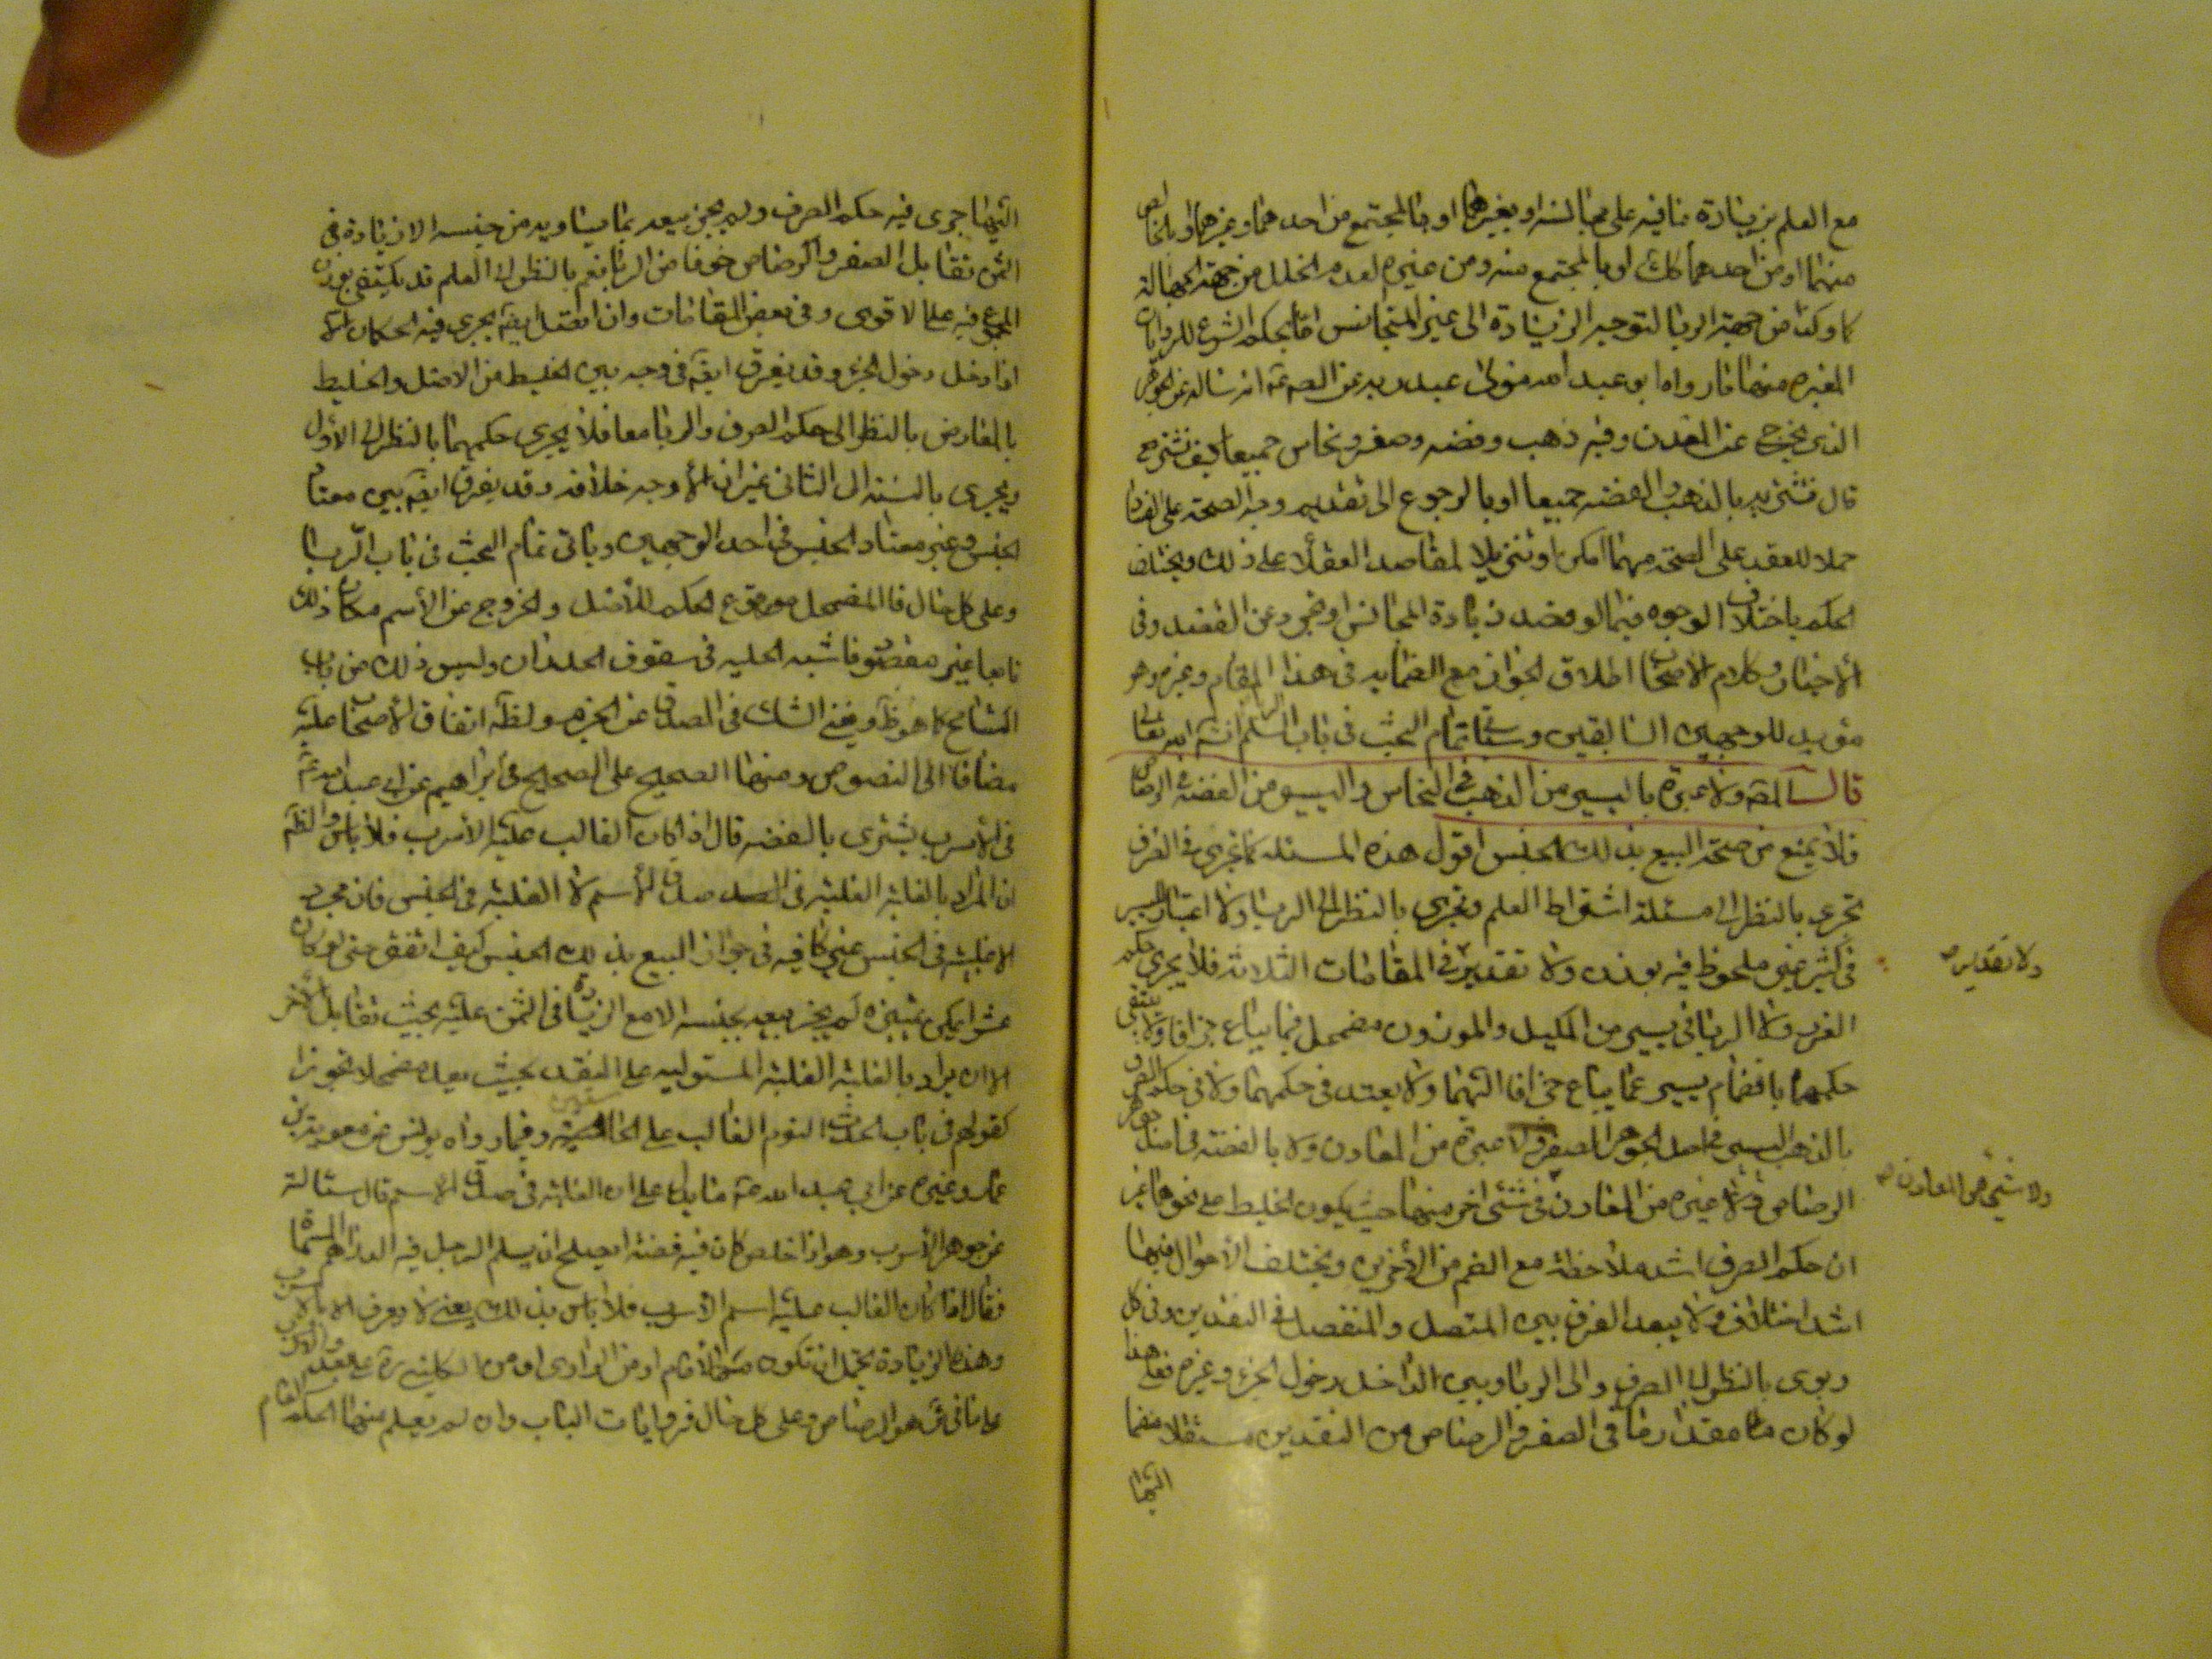 مع العلم بزيادة ما فيه على مجالسه او بغيرهما او بالمجتمع من احدهما وغيرهما او بالخالص
منهما او من احدهما كك او بالمجتمع منه ومن غيره لعدم الخلل من جهة الجهالة
كما وكك من جهة الربا لتوجه الزيادة الى غير المتجانس اما بحكم الشرع للروايات
المعتبره منها ما رواه ابو عبد الله مولى عبد ربه عن الصم عم انه ساله عن الجوهر
الذى يخرج عن المعدن وفيه ذهب وفضه وصفر ونحاس جميعا كيف نشتريه
قال تشتريه بالذهب والفضه جميعا او بالرجوع الى تقديم وجه الصحة على الفساد
حملا للعقد على الصحة مهما امكن او تنزيلا لمقاصد العقلا على ذلك ويختلف
الحكم باختلاف الوجوه فيما لو قصد زيادة المجانس او تجرد عن القصد وفى
الأخبار وكلام الاصحاب اطلاق الجواز مع الضمايم فى هذا المقام وغيره وهو
مؤيد للوجهين السابقين وسياتى تمام البحث فى باب السلم انشاء الله تعالى
قال المصه ولا عبرة باليسير من الذهب فى النحاس واليسير من الفضة فى الرصاص
فلا يمنع من صحة البيع بذلك الجنس اقول هذه المسئله كما تجرى فى الصرف
تجرى بالنظر الى مسئلة اشتراط العلم وتجرى بالنظر الى الربا ولا اعتبار بيسير
فى كثير غير ملحوظ فيه بوزن ولا تقدير فى المقامات الثلاثة فلا يجرى حكم
ولا تقدير صح
الغرر ولا الربا فى يسير من المكيل والموزون مضمحل فيما يباع جزافا ولا ينتفى
حكمهما بانضمام يسير مما يباع جزافا اليهما ولا يعتد فى حكمهما ولا فى حكم الصرف
بالذهب اليسير فى اصل الجوهر الصفر ولا غيره من المعادن ولا بالفضة فى اصل جوهر
الرصاص ولا غيره من المعادن فى شئ اخر منها حيث يكون الخليط على نحوها غير
ولا شئ من المعادن صح
ان حكم الصرف اشد ملاحظة مع الضم من الأخرين ويختلف الأحوال فيهما
اشد اختلاف ولا يبعد الفرق بين المتصل والمنفصل فى النقدين وفى كل
ربوى بالنظر الى الصرف والى الربا وبين الداخل دخول الجزء وغيره فعلى هذا
لو كان مقدار ما فى الصفر والرصاص من النقدين مستقلا منضما
اليهما
اليهما جرى فيه حكم الصرف ولم يجز بيعه بما يساويه من جنسه الا زيادة فى
الثمن تقابل الصفر والرصاص خوفا من الربا نعم بالنظر الى العلم قد يكتفى بوزن
المجموع فيه على الاقوى وفى بعض المقامات وان اتصل ايضا يجرى فيه الحكمان الا
اذا دخل دخول الجزء وقد يفرق ايضا فى وجه بين الخليط من الاصل والخليط
بالعارض بالنظر الى حكم الصرف والربا معا فلا يجرى حكمهما بالنظر الى الأول
ويجرى بالنسبة الى الثانى غير ان الأوجه خلافه وقد يفرق ايضا بين معتاد
الجنس وغير معتاد الجنس فى احد الوجهين وياتى تمام البحث فى باب الربا
وعلى كل حال فالمضمحل موضوع الحكم للأصل والخروج عن الأسم مكان ذلك
تابعا غير مقصود فاشبه الحليه فى سقوف الجدران وليس ذلك من باب
التسامح كما هو ظ ويغنى الشك فى الصدق عن الجزم ولظ اتفاق الأصحاب عليه
مضافا الى النصوص ومنها الصحيح على الصحيح فى ابراهيم عن ابى عبد الله عم
فى الأسرب يشترى بالفضه قال اذا كان الغالب عليه الاسرب فلا باس والظم
ان المراد بالغلبه الغلبه فى صدق الأسم لا الغلبه فى الجنس فان مجرد
الاغلبيه فى الجنس غير كافيه فى جواز البيع بذلك الجنس كيف اتفق حتى لو كان
عشرا يمكن تمييزه لم يجز بيعه بجنسه الا مع الزيادة فى الثمن عليه بحيث تقابل الأخر
الا ان يراد بالغلبه الغلبه المستوليه على النقد بحيث يعد مضمحلا تجوزا
كقولهم فى باب الحدث النوم الغالب على الحاسة وفيما رواه يونس عن معويه بن
عمار وغيره عن ابى عبد الله عم ما يدل على ان الغلبه فى صدق الأسم قال سئالته
عن جوهر الأسرب وهو اذا خلص كان فيه فضة ايصلح ان يسلم الرجل فيه الدراهم المسماة
فقال اذا كان الغالب عليه اسم الأسرب فلا باس بذلك يعنى لا يعرف الا بالأسرب
وهذه الزيادة يحتمل ان تكون من الأمام او من الراوى او من الكلينى ره على بعد والاسرب
على ما فى ق هو الرصاص وعلى كل حال فروايات الباب وان لم يعلم منها الحكم العام